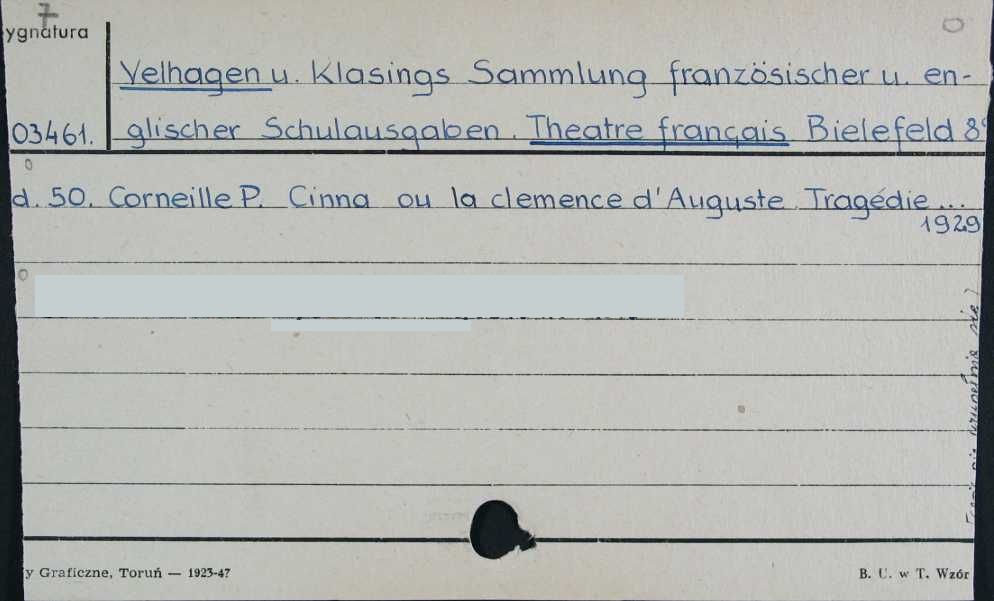 7
ygnatura
Velhagen u. Klasings Sammlung französischer u. en-
03461. glischer Schulausgaben. Theatre français Bielefeld 8°
d. 50. Corneille P. Cinna ou la clemence d'Auguste Tragédie...
1929
y Graficzne, Toruń — 1923-47
B. U. w T. Wzór